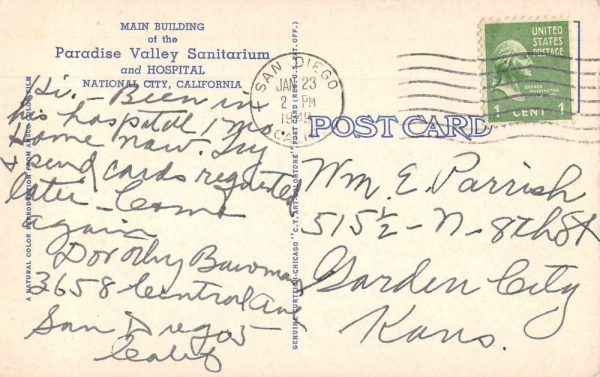 MAIN BUILDING
of the
Paradise Valley Sanitarium
and HOSPITAL
NATIONAL CITY, CALIFORNIA
Hi. - Been in
this hospital 1 mo
Home now. Try
& send cards requested
later - Come
again
Dorothy Bowman
3658 Central Av
San Diego 5
Calif
A NATURAL COLOR REPRODUCTION FROM
GENUINE CURTEICH-CHICAGO "C.T. ART-COLORTONE" POST CARD (REG. U.S. PAT. OFF.)
SAN DIEGO
JAN 23
2 PM
CA
POST CARD
UNITED
STATES
POSTAGE
GEORGE WASHINGTON
1 CENT 1
Wm. E. Parrish
515½ - N - 8th St
Garden City
Kans.